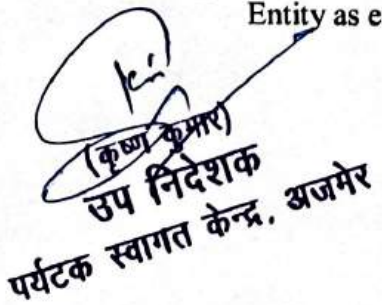 Entity as e
(कृष्ण कुमार)
उप निदेशक
पर्यटक स्वागत केन्द्र, अजमेर